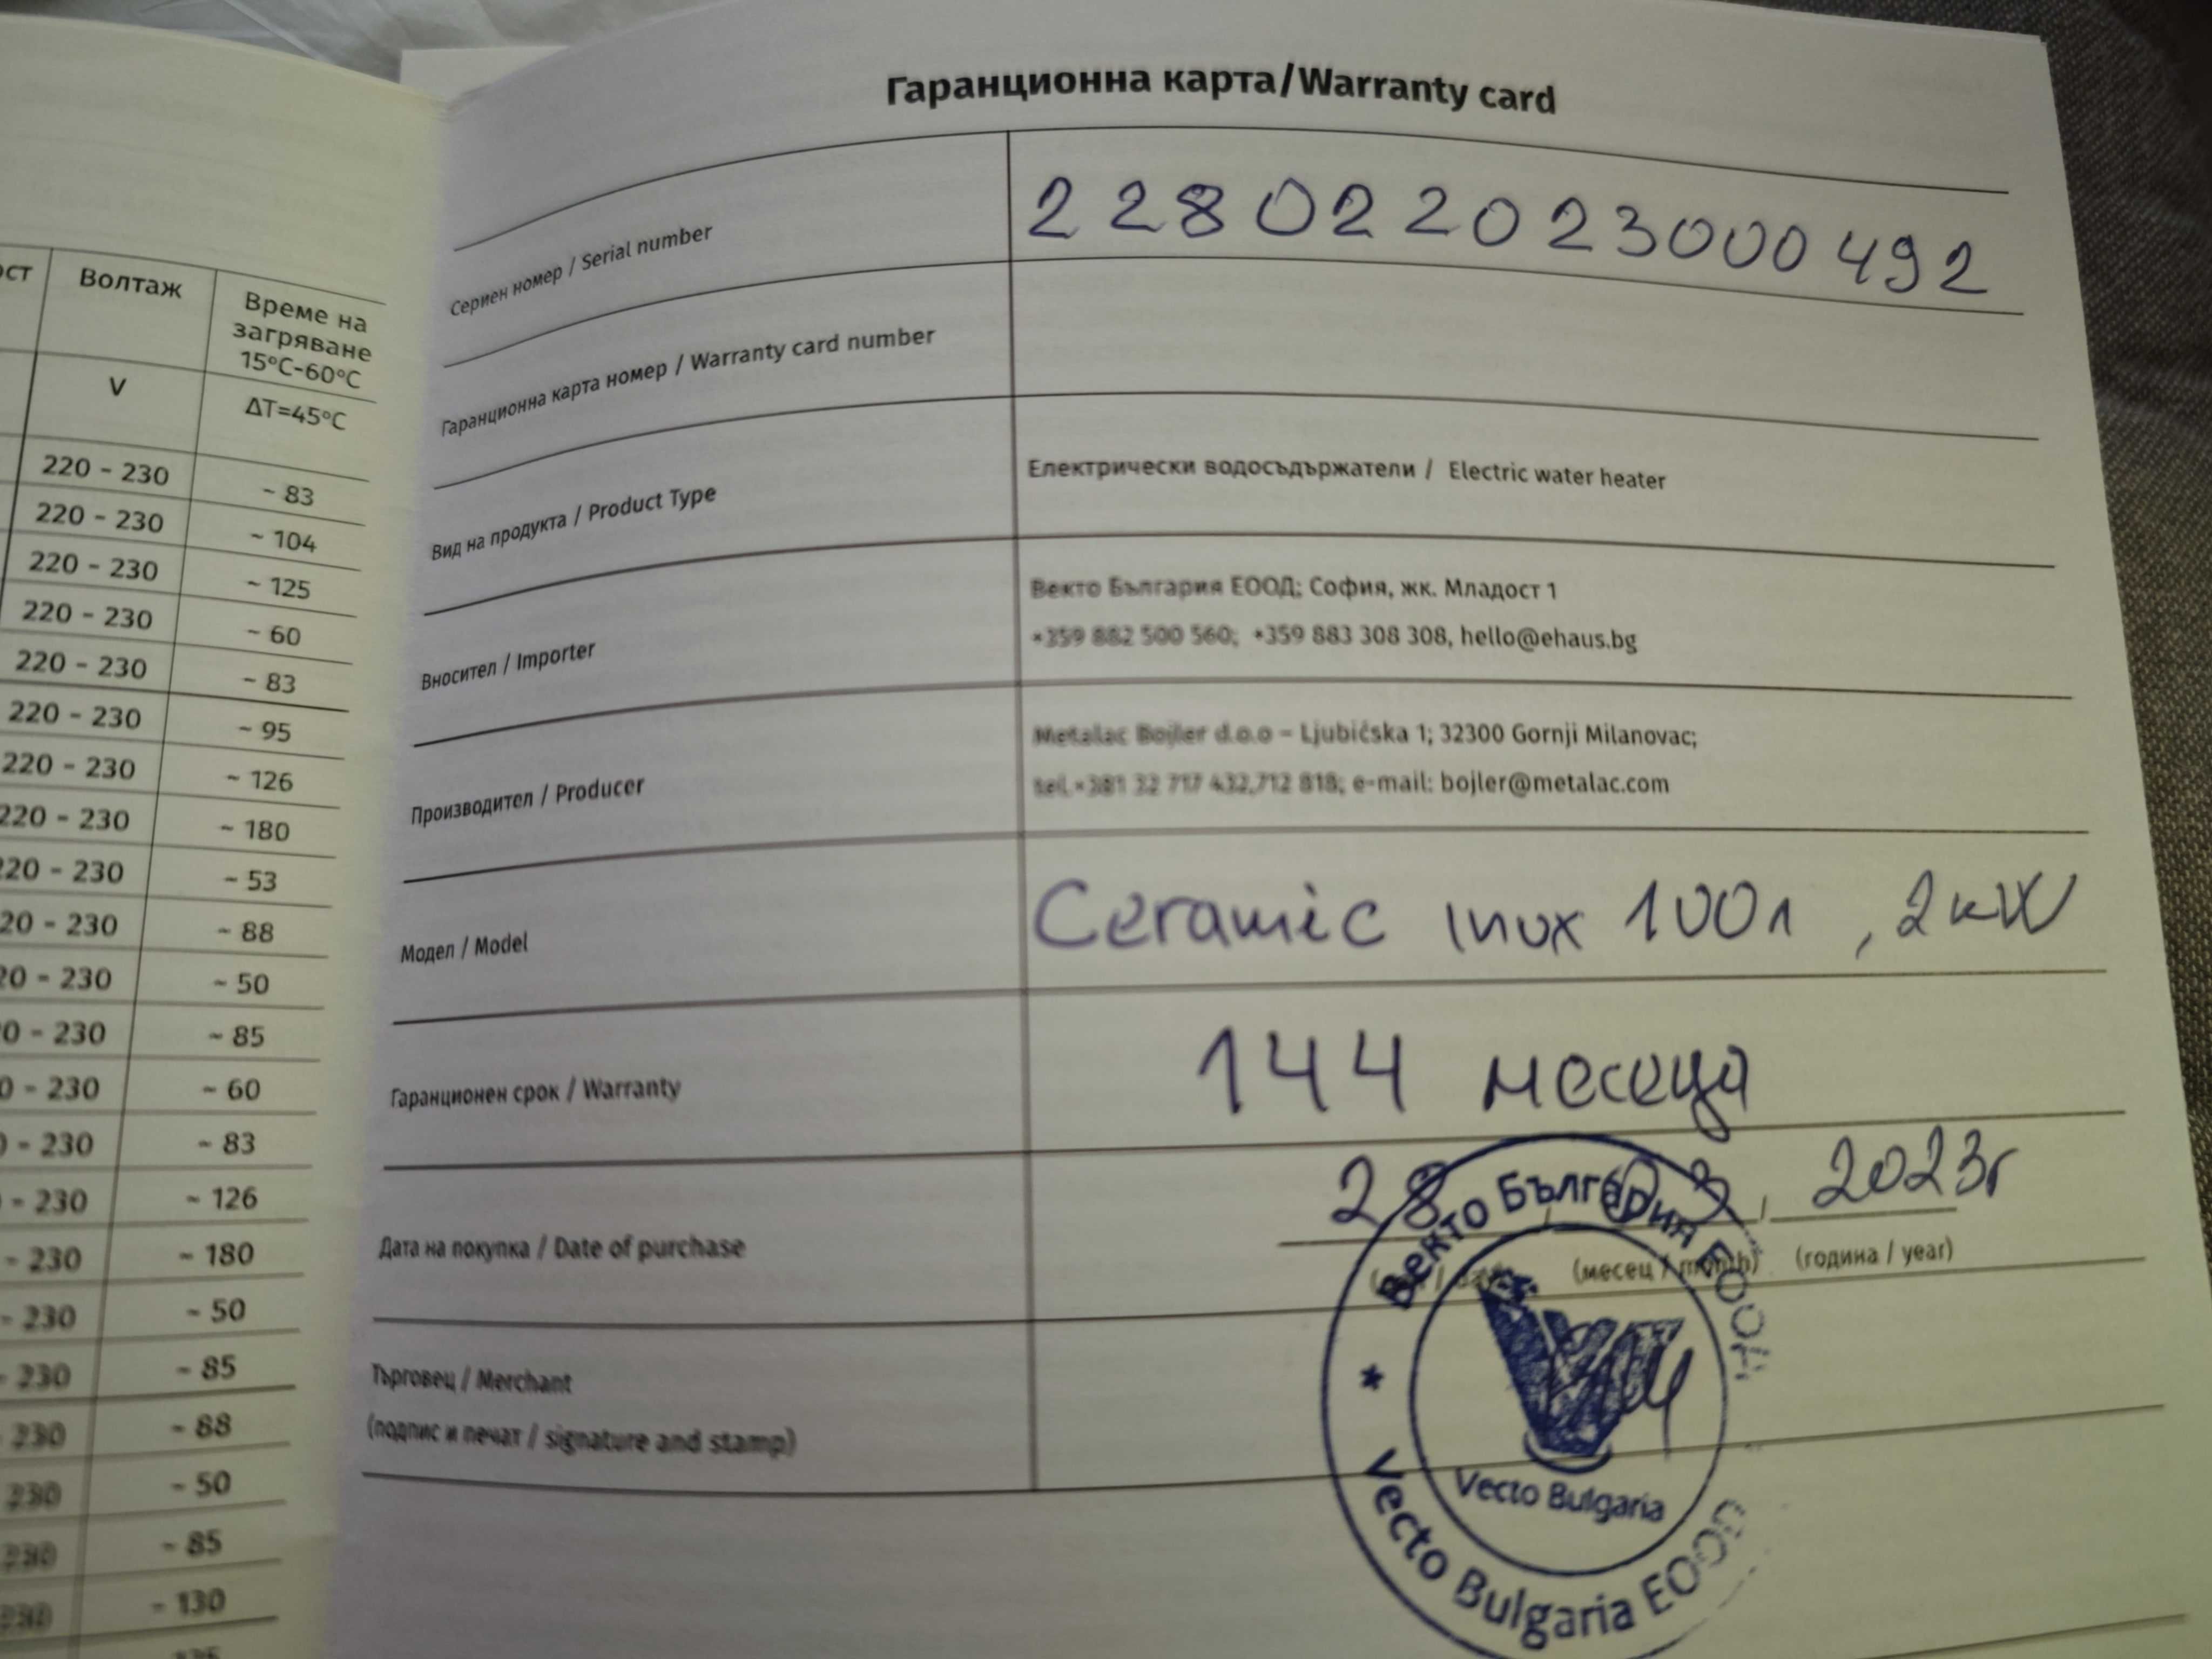 ост
Волтаж
Време на
загряване
15°C-60°C
V
ΔT=45°C
220 - 230 ~ 83
220 - 230 ~ 104
220 - 230 ~ 125
220 - 230 ~ 60
220 - 230 ~ 83
220 - 230 ~ 95
220 - 230 ~ 126
220 - 230 ~ 180
220 - 230 ~ 53
20 - 230 ~ 88
20 - 230 ~ 50
0 - 230 ~ 85
0 - 230 ~ 60
- 230 ~ 83
- 230 ~ 126
- 230 ~ 180
- 230 ~ 50
- 230 ~ 85
230 ~ 88
230 ~ 50
230 ~ 85
230 ~ 130
Гаранционна карта/Warranty card
Сериен номер / Serial number
228022023000492
Гаранционна карта номер / Warranty card number
Вид на продукта / Product Type
Електрически водосъдържатели / Electric water heater
Вносител / Importer
Векто България ЕООД; София, жк. Младост 1
+359 882 500 560; +359 883 308 308, hello@ehaus.bg
Производител / Producer
Metalac Bojler d.o.o – Ljubićska 1; 32300 Gornji Milanovac;
tel.+381 32 717 432,712 818; e-mail: bojler@metalac.com
Модел / Model
Ceramic inox 100л, 2kW
Гаранционен срок / Warranty
144 месеца
Дата на покупка / Date of purchase
28 / 03 / 2023г
(месец / month) (година / year)
Търговец / Merchant
(подпис и печат / signature and stamp)
Векто България ЕООД
Vecto Bulgaria
Vecto Bulgaria EOOD